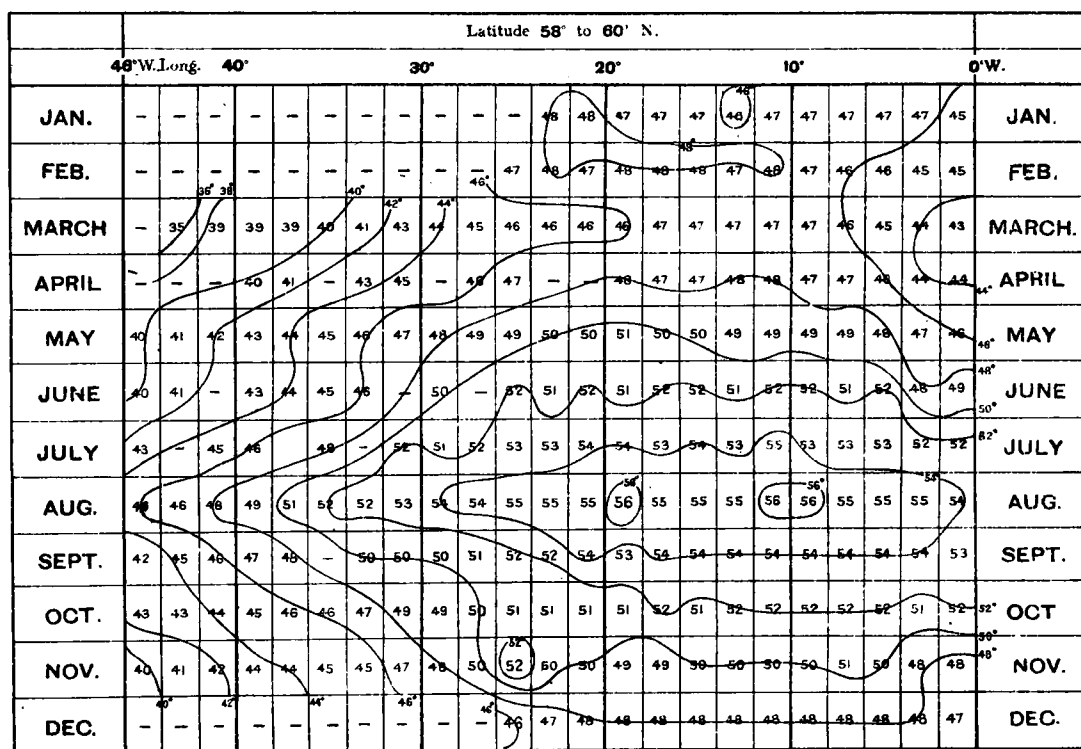 Latitude 58° to 60' N.
46°W.Long. 40° 30° 20° 10° 0°W.
48°
JAN. – – – – – – – – – – – 48 48 47 47 47 48 47 47 47 47 47 45 JAN.
48°
FEB. – – – – – – – – – – 47 48 47 48 48 48 47 48 47 46 46 45 45 FEB.
36° 38° 40° 42° 44° 46°
MARCH – 35 39 39 39 40 41 43 44 45 46 46 46 46 47 47 47 47 47 46 45 44 43 MARCH.
APRIL – – – 40 41 – 43 45 – 46 47 – – 48 47 47 48 48 47 47 46 44 44 APRIL
44°
MAY 40 41 42 43 44 45 46 47 48 49 49 50 50 51 50 50 49 49 49 49 48 47 46 MAY
46°
48°
JUNE 40 41 – 43 44 45 46 – 50 – 52 51 52 51 52 52 51 52 52 51 52 48 49 JUNE
50°
52°
JULY 43 – 45 46 48 – 52 51 52 53 53 54 54 53 54 53 55 53 53 53 52 52 JULY
56° 56°
AUG. 46 48 49 51 52 52 53 54 54 55 55 55 56 55 55 55 56 56 55 55 55 54 AUG.
SEPT. 42 45 46 47 48 – 50 50 50 51 52 52 54 53 54 54 54 54 54 54 54 54 53 SEPT.
OCT. 43 43 44 45 46 46 47 49 49 50 51 51 51 51 52 51 52 52 52 52 52 51 52 52° OCT
52° 50°
48°
NOV. 40 41 42 44 44 45 45 47 48 50 52 50 50 49 49 50 50 50 50 51 50 48 48 NOV.
40° 42° 44° 46° 46°
DEC. – – – – – – – – – – 46 47 48 48 48 48 48 48 48 48 48 48 47 DEC.